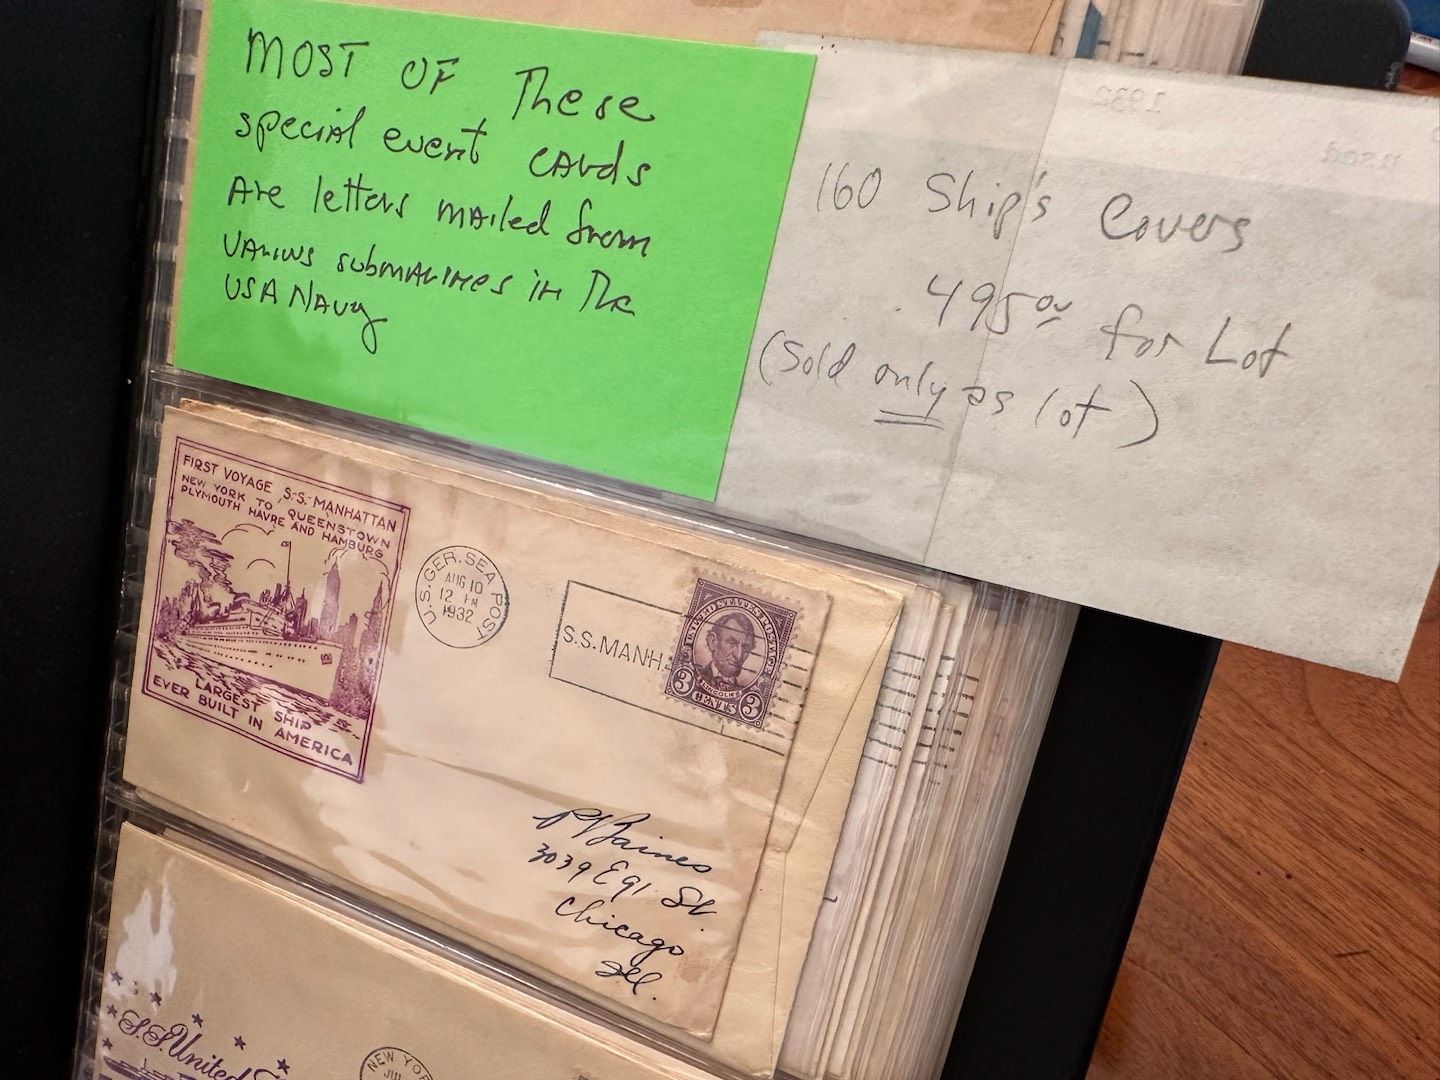 MOST OF These
special event cards
Are letters mailed from
various submarines in the
USA Navy
1932
used
160 Ship's Covers
495.00 for Lot
(Sold only as lot)
FIRST VOYAGE S.S. MANHATTAN
NEW YORK TO QUEENSTOWN
PLYMOUTH HAVRE AND HAMBURG
LARGEST SHIP
EVER BUILT IN AMERICA
U.S. GER. SEA POST
AUG 10
12 PM
1932
S.S. MANH
UNITED STATES POSTAGE
LINCOLN
3 CENTS 3
3039 E 91 St.
Chicago
Ill.
S.S. United
NEW YO
JUL